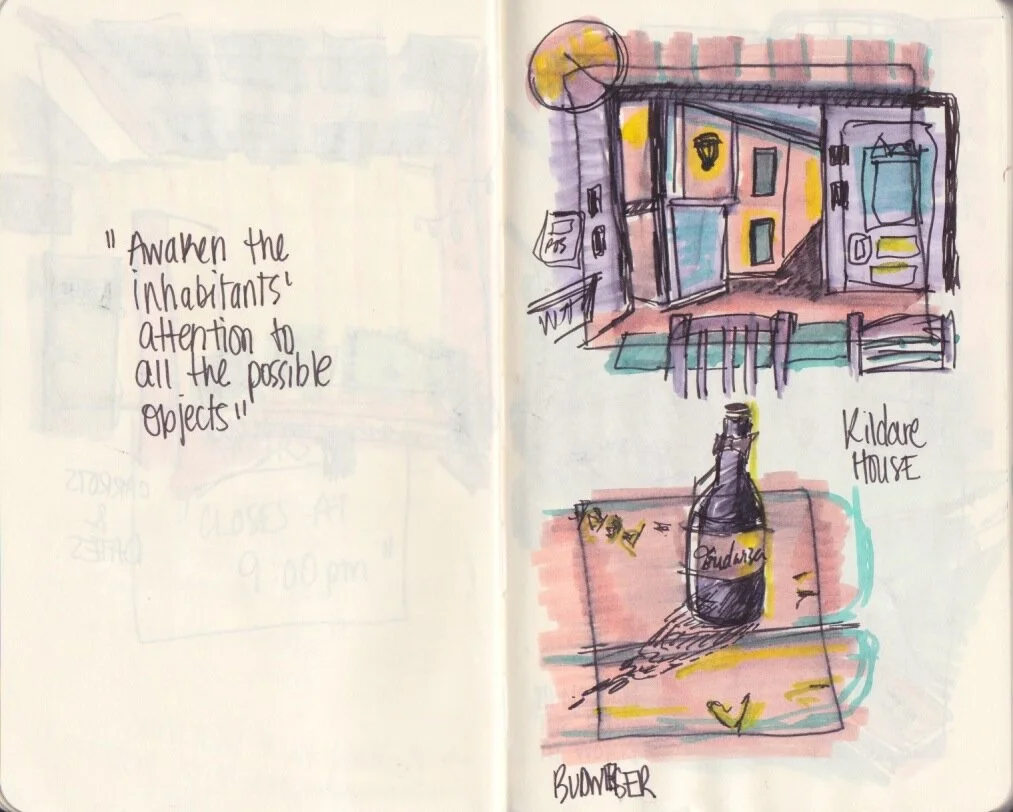 "Awaken the
inhabitants'
attention to
all the possible
objects"
Kildare
HOUSE
Budweiser
BUDWEISER